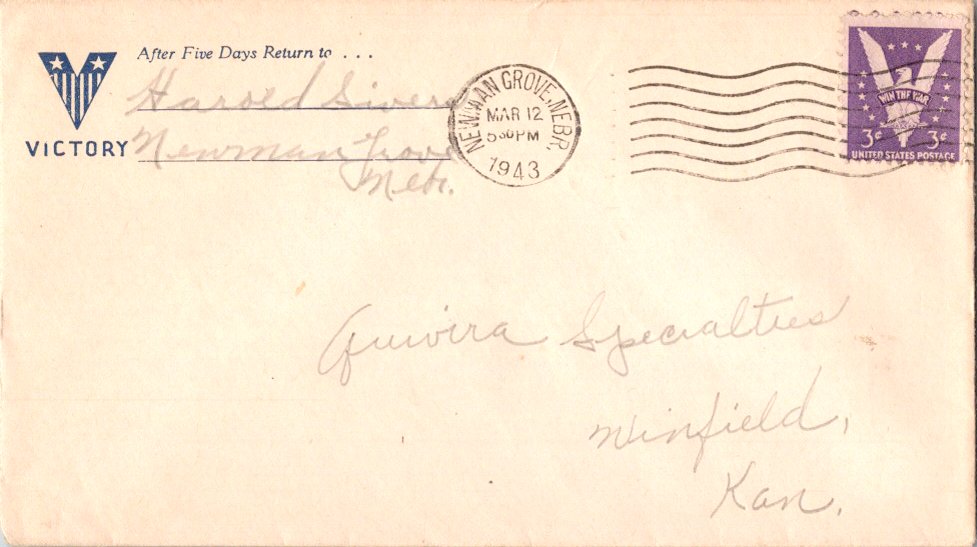 After Five Days Return to . . .
VICTORY
Harold Sivers
Newman Grove
Nebr.
NEWMAN GROVE, NEBR.
MAR 12
5 30 PM
1943
WIN THE WAR
3¢ 3¢
UNITED STATES POSTAGE
Quivira Specialties
Winfield,
Kan.